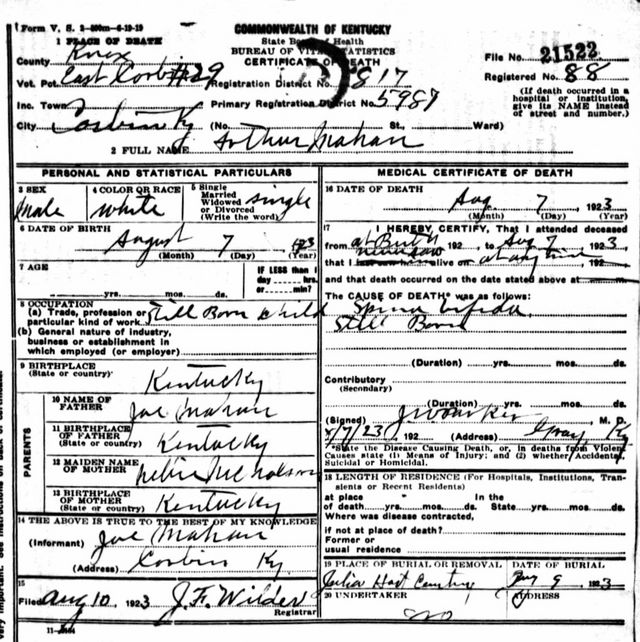 Form V. S. 2-500m-6-19-19
1 PLACE OF DEATH
COMMONWEALTH OF KENTUCKY
State Board of Health
BUREAU OF VITAL STATISTICS
CERTIFICATE OF DEATH
County Knox
File No. 21522
Vot. Pct. East Corbin #29 Registration District No. 817
Registered No. 88
Inc. Town Primary Registration District No. 5987
(If death occurred in a hospital or institution, give its NAME instead of street and number.)
City Corbin Ky (No. St., Ward)
2 FULL NAME Arthur Mahan
PERSONAL AND STATISTICAL PARTICULARS
3 SEX Male
4 COLOR OR RACE white
5 Single Married Widowed or Divorced (Write the word) single
6 DATE OF BIRTH
August 7 1923
(Month) (Day) (Year)
7 AGE
yrs. mos. ds.
IF LESS than 1 day hrs. or min.?
8 OCCUPATION
(a) Trade, profession or particular kind of work Still Born Child
(b) General nature of industry, business or establishment in which employed (or employer)
9 BIRTHPLACE
(State or country) Kentucky
PARENTS
10 NAME OF FATHER Joe Mahan
11 BIRTHPLACE OF FATHER (State or country) Kentucky
12 MAIDEN NAME OF MOTHER Nicholson
13 BIRTHPLACE OF MOTHER (State or country) Kentucky
14 THE ABOVE IS TRUE TO THE BEST OF MY KNOWLEDGE
(Informant) Joe Mahan
(Address) Corbin Ky
15
Filed Aug 10, 1923 J. F. Wilder
Registrar
MEDICAL CERTIFICATE OF DEATH
16 DATE OF DEATH
Aug 7 1923
(Month) (Day) (Year)
17 I HEREBY CERTIFY, That I attended deceased
from at Birth 192 , to Aug 7 1923
that I never saw him alive on at any time, 192
and that death occurred on the date stated above at m.
The CAUSE OF DEATH* was as follows:
Spina bifida
Still Born
(Duration) yrs. mos. ds.
Contributory
(Secondary)
(Duration) yrs. mos. ds.
(Signed) J W Parker M. D.
8/7/23, 192 (Address) Gray Ky
*State the Disease Causing Death, or, in deaths from Violent Causes state (1) Means of Injury; and (2) whether Accidental, Suicidal or Homicidal.
18 LENGTH OF RESIDENCE (For Hospitals, Institutions, Transients or Recent Residents)
At place of death yrs. mos. ds. In the State yrs. mos. ds.
Where was disease contracted,
if not at place of death?
Former or usual residence
19 PLACE OF BURIAL OR REMOVAL
Julia Hart Cemetery
DATE OF BURIAL
Aug 9 1923
20 UNDERTAKER
no
ADDRESS